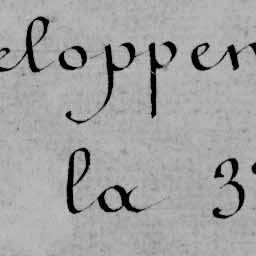 eloppen
la 3